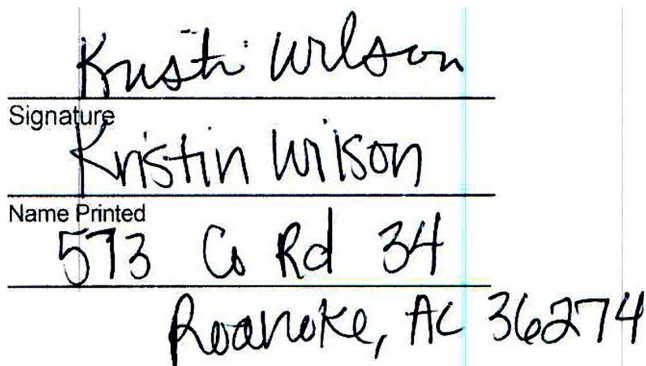 Kristi Wilson
Signature
Kristin Wilson
Name Printed
573 Co Rd 34
Roanoke, AL 36274